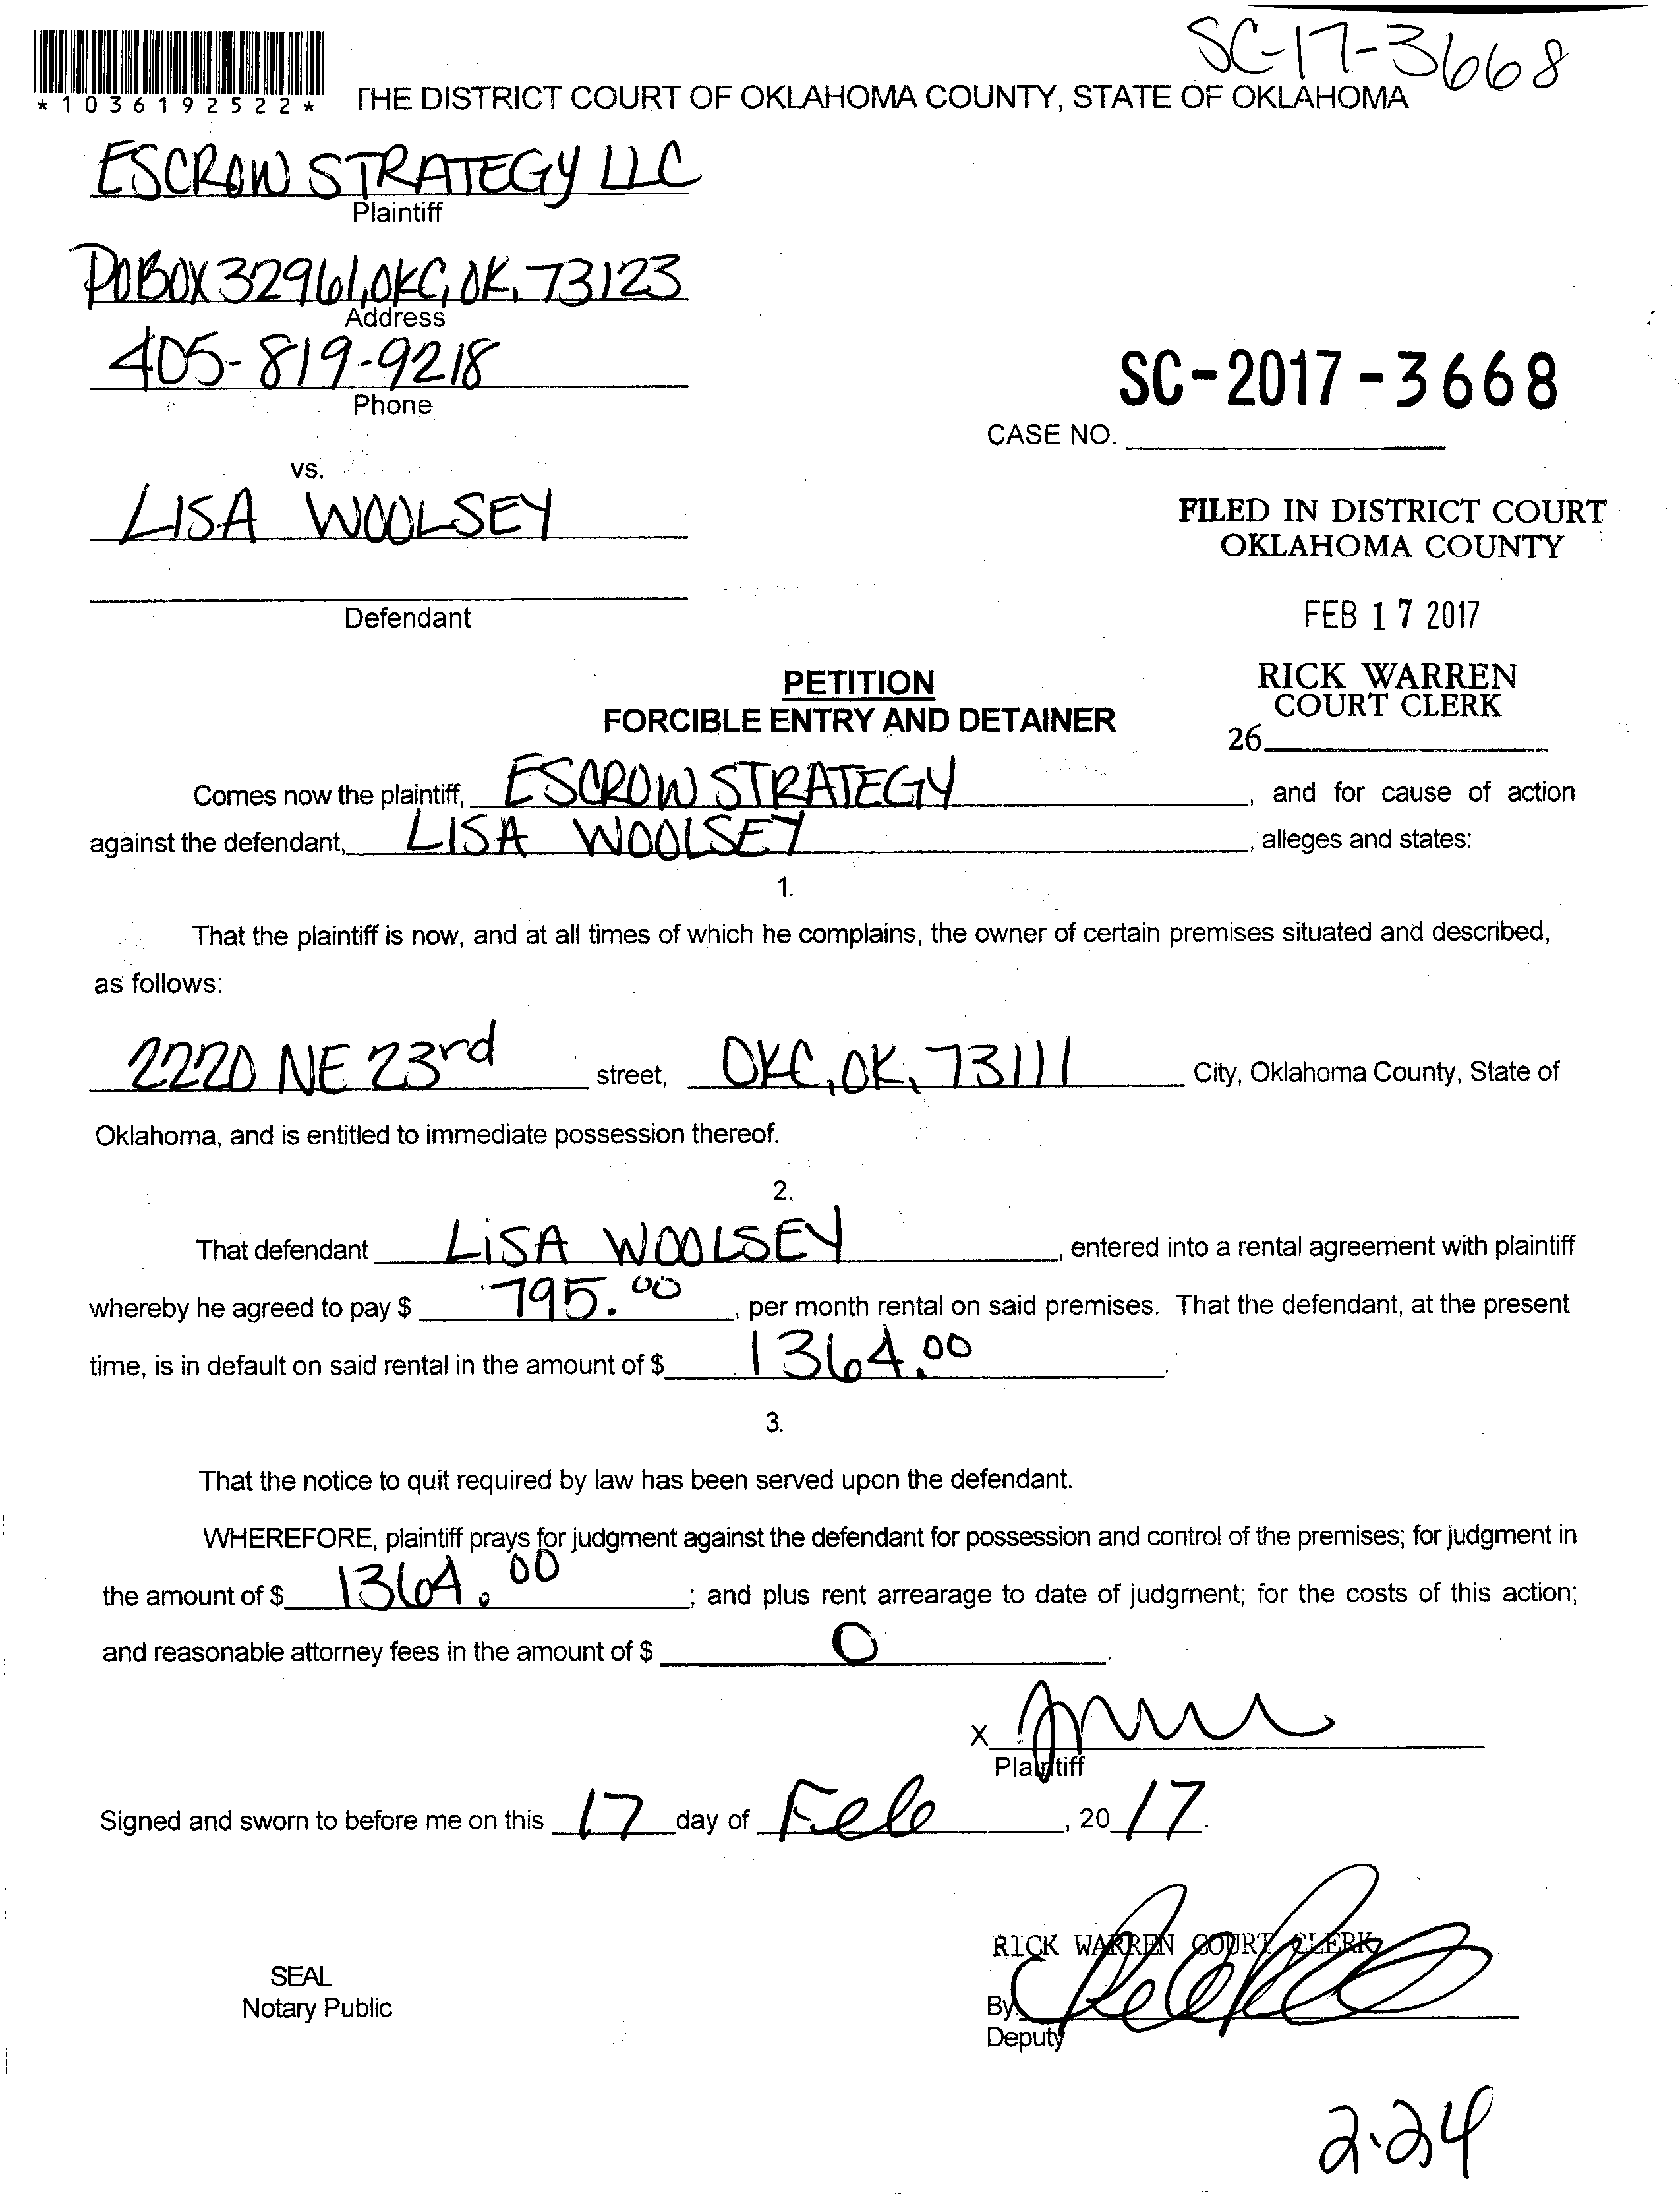 SC-17-3668
*1036192522*
THE DISTRICT COURT OF OKLAHOMA COUNTY, STATE OF OKLAHOMA
ESCROW STRATEGY LLC
Plaintiff
PO BOX 32961, OKC, OK, 73123
Address
405-819-9218
Phone
SC-2017-3668
CASE NO.
vs.
LISA WOOLSEY
Defendant
FILED IN DISTRICT COURT
OKLAHOMA COUNTY
FEB 17 2017
RICK WARREN
COURT CLERK
26
PETITION
FORCIBLE ENTRY AND DETAINER
Comes now the plaintiff, ESCROW STRATEGY, and for cause of action
against the defendant, LISA WOOLSEY, alleges and states:
1.
That the plaintiff is now, and at all times of which he complains, the owner of certain premises situated and described,
as follows:
2220 NE 23rd street, OKC, OK, 73111 City, Oklahoma County, State of
Oklahoma, and is entitled to immediate possession thereof.
2.
That defendant LISA WOOLSEY, entered into a rental agreement with plaintiff
whereby he agreed to pay $ 795.00, per month rental on said premises. That the defendant, at the present
time, is in default on said rental in the amount of $ 1364.00.
3.
That the notice to quit required by law has been served upon the defendant.
WHEREFORE, plaintiff prays for judgment against the defendant for possession and control of the premises; for judgment in
the amount of $ 1364.00; and plus rent arrearage to date of judgment; for the costs of this action;
and reasonable attorney fees in the amount of $ 0.
X
Plaintiff
Signed and sworn to before me on this 17 day of Feb, 2017.
RICK WARREN COURT CLERK
SEAL
Notary Public
By:
Deputy
2.24